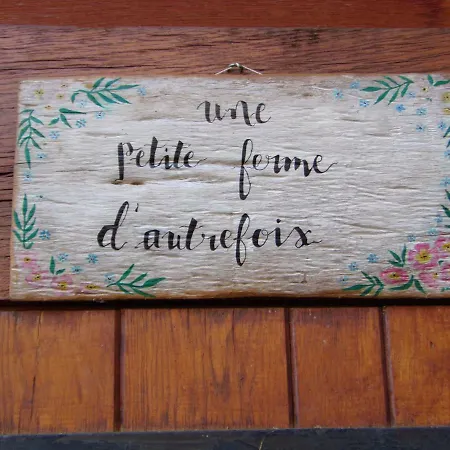 une
Petite ferme
d'autrefois